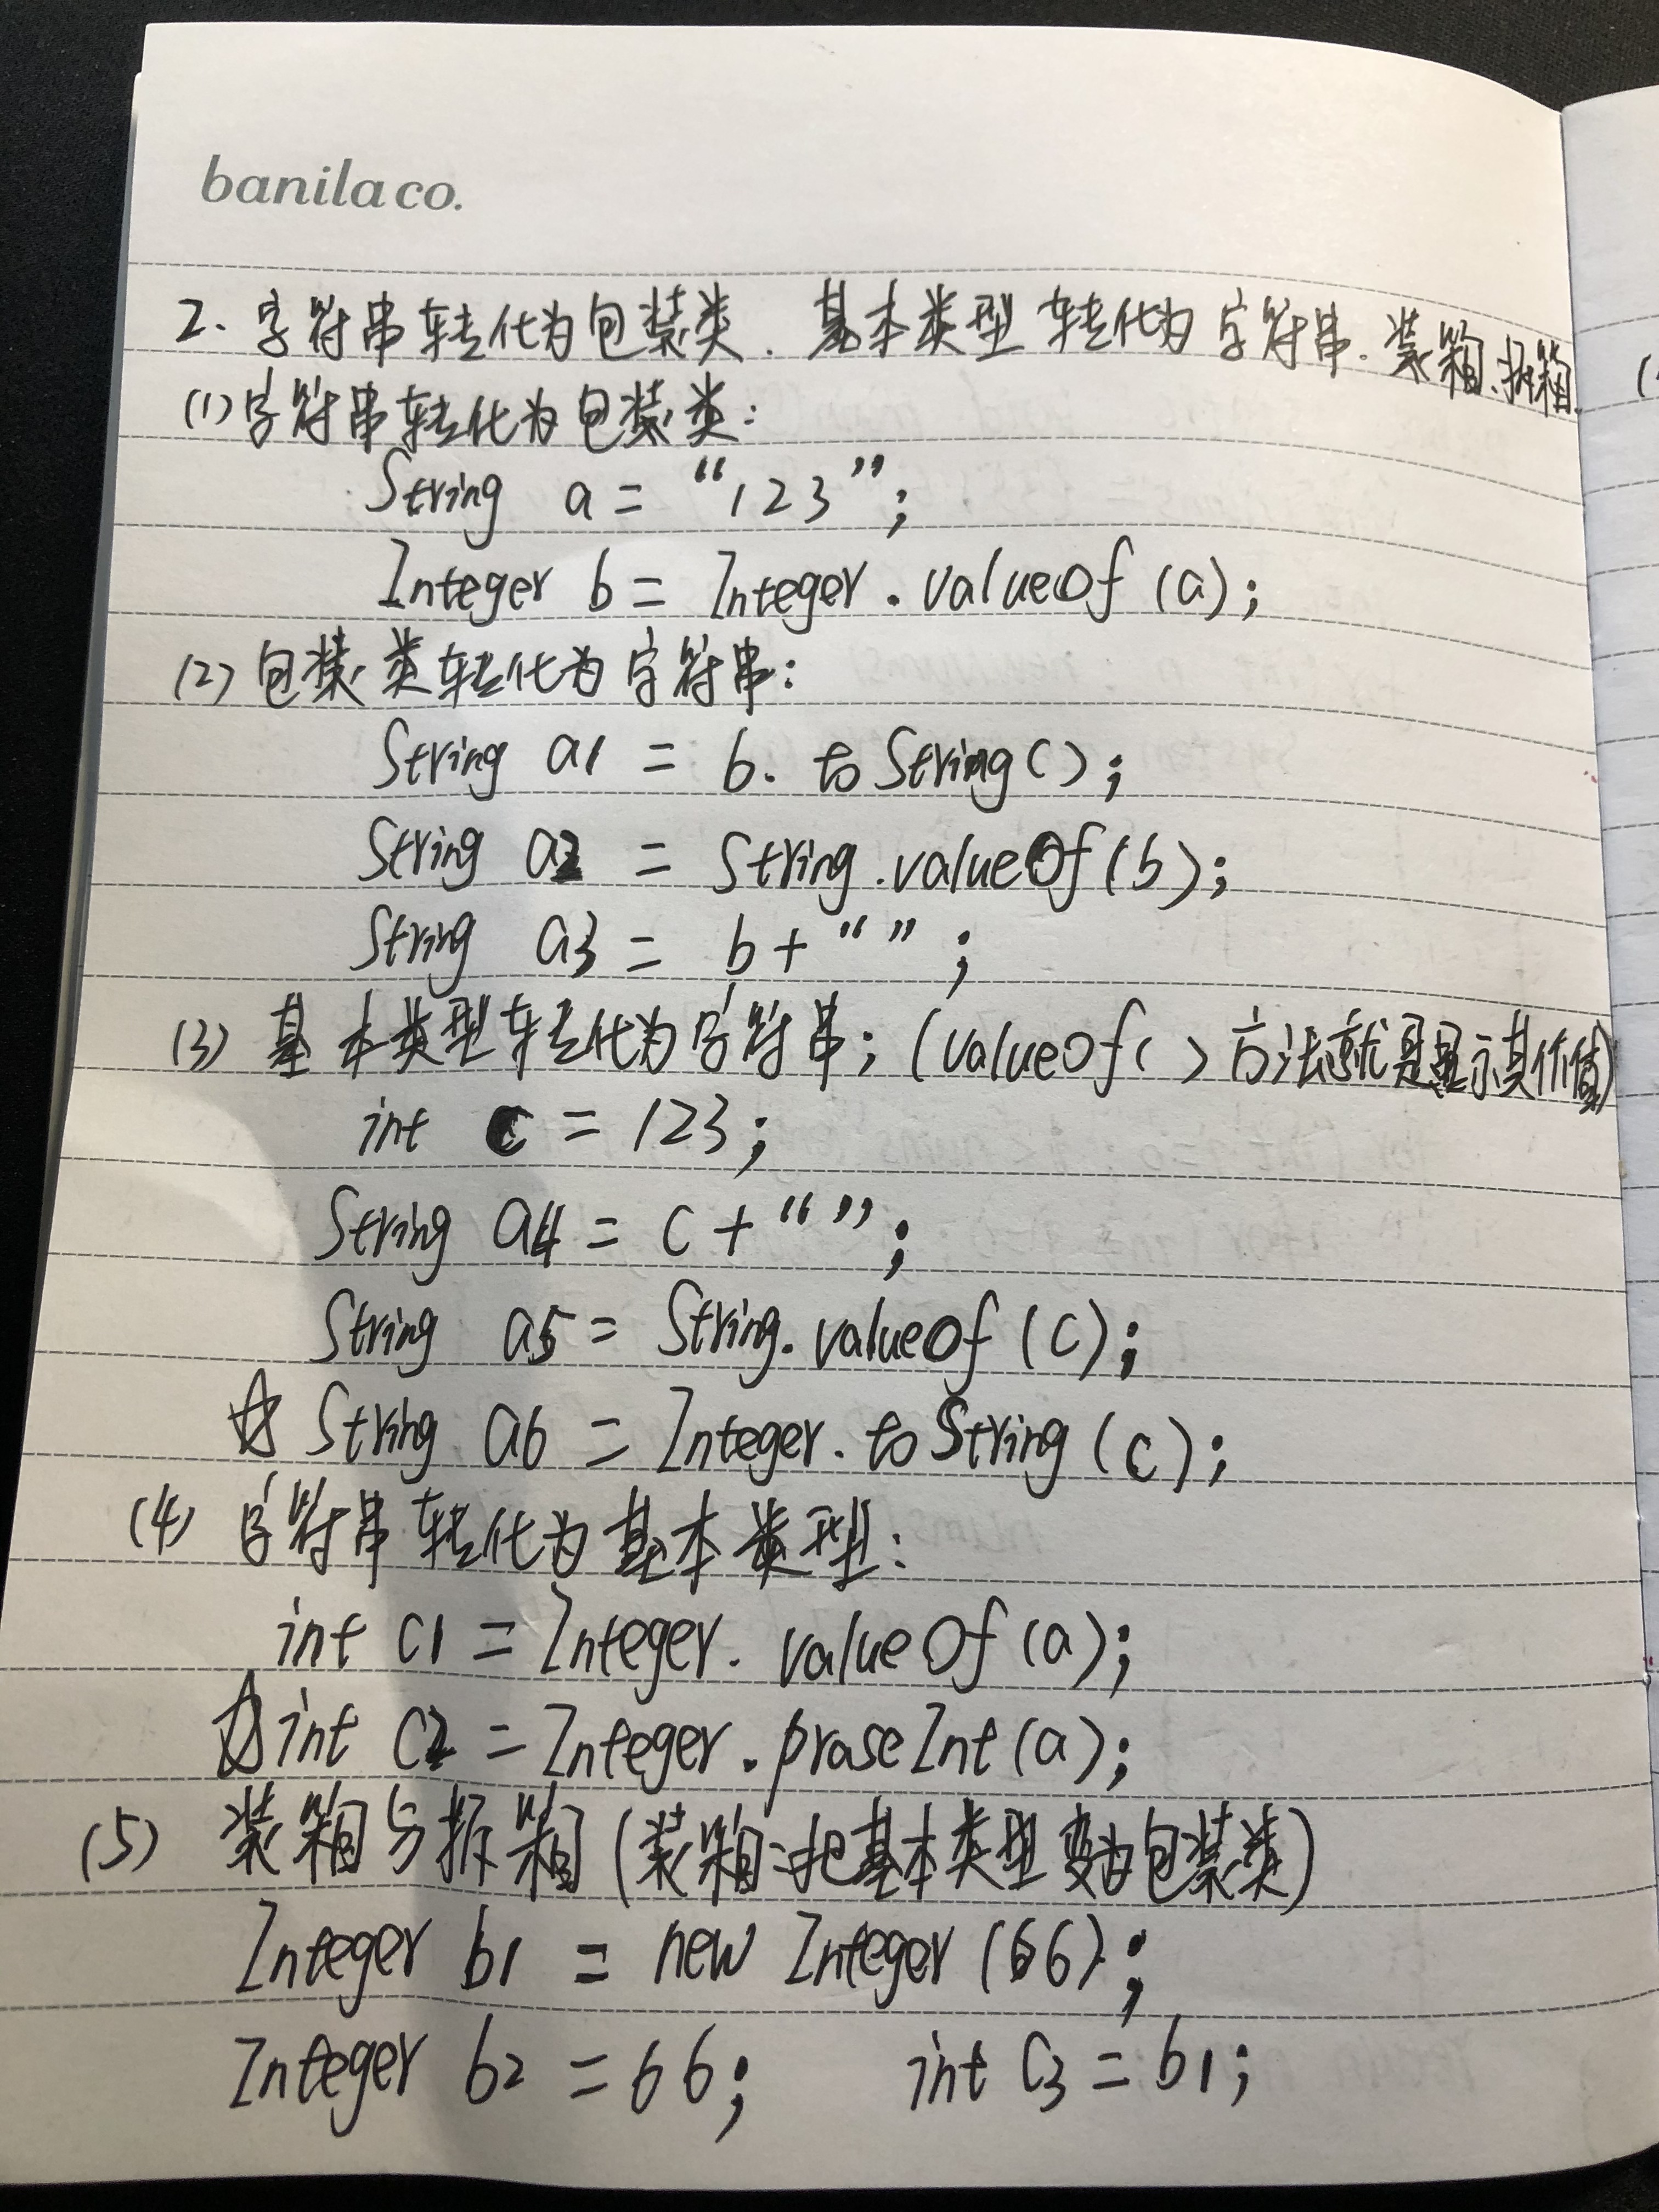 banila co.
2、字符串转化为包装类、基本类型转化为字符串、装箱、拆箱
(1)字符串转化为包装类:
String a = “123”;
Integer b = Integer.valueOf(a);
(2)包装类转化为字符串:
String a1 = b.toString();
String a2 = String.valueOf(b);
String a3 = b+“”;
(3) 基本类型转化为字符串;(valueOf()方法就是显示其价值)
int c = 123;
String a4 = c+“”;
String a5 = String.valueOf(c);
☆ String a6 = Integer.toString(c);
(4) 字符串转化为基本类型:
int c1 = Integer.valueOf(a);
☆int c2 = Integer.praseInt(a);
(5) 装箱与拆箱(装箱:把基本类型变为包装类)
Integer b1 = new Integer(66);
Integer b2 = 66; int c3 = b1;